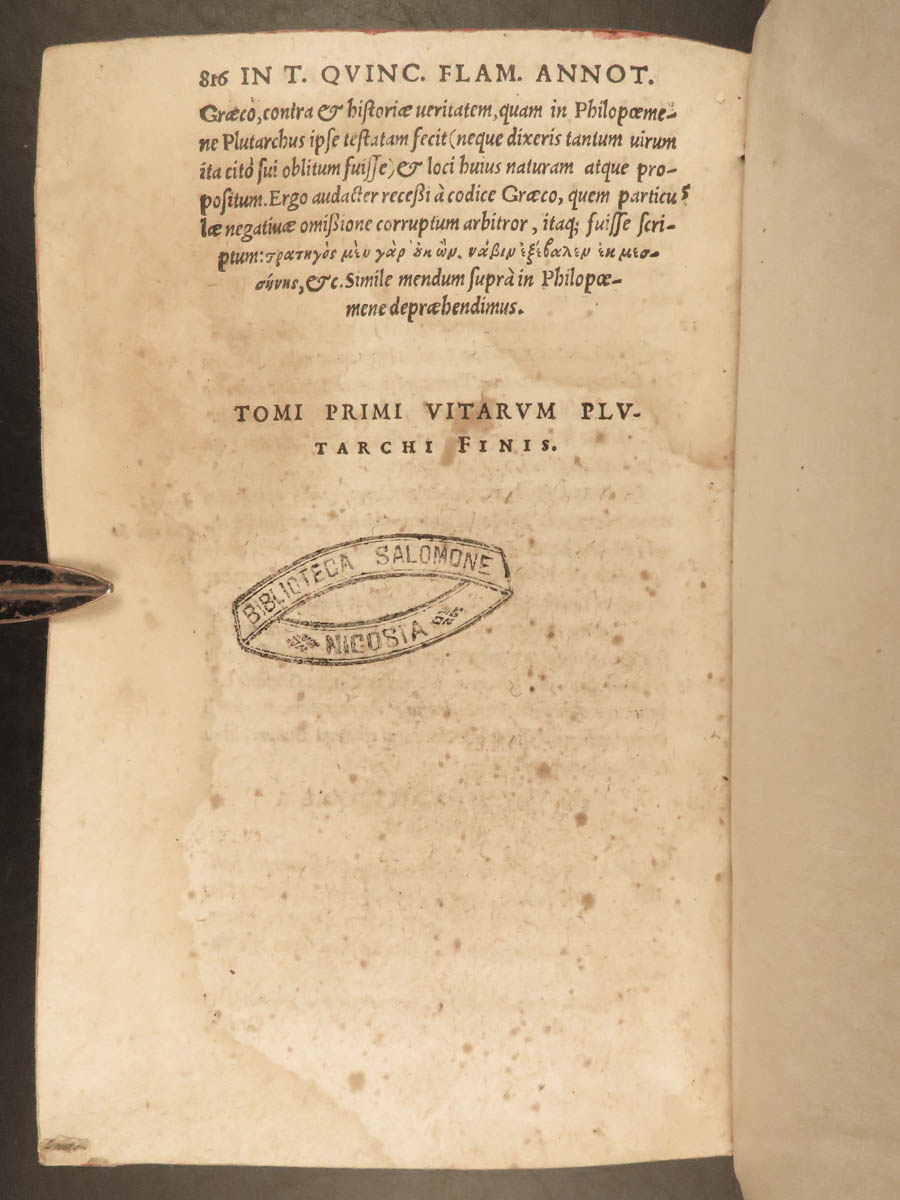 816 IN T. QVINC. FLAM. ANNOT.
Græcò, contra & historiæ ueritatem, quam in Philopœme-
ne Plutarchus ipse testatam fecit (neque dixeris tantum uirum
ita citò sui oblitum fuisse) & loci huius naturam atque pro-
positum. Ergo audacter recessi à codice Græco, quem particu
læ negatiuæ omißione corruptum arbitror, itaq; fuisse scri-
ptum: στρατηγὸς μὲν γὰρ οὐκ ὢν, νάβιν ἐξέβαλεν ἐκ μεσ-
σήνης, &c. Simile mendum suprà in Philopœ-
mene depræhendimus.
TOMI PRIMI VITARVM PLV-
TARCHI FINIS.
BIBLIOTECA SALOMONE
NICOSIA